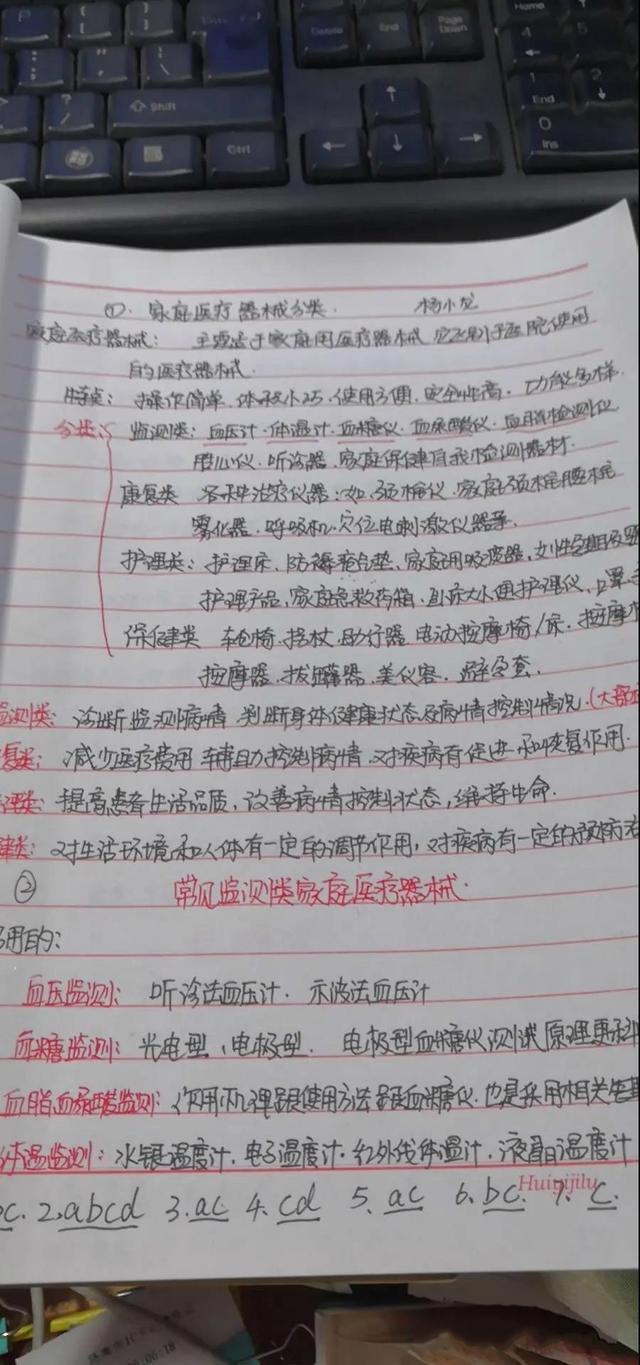 P
Delete
End
Page Down
Home
4
Shift
1
End
2
Ctrl
0
Ins
①. 家庭医疗器械分类. 杨小龙
家庭医疗器械: 主要适于家庭用医疗器械 它区别于医院使用
的医疗器械.
特点: 操作简单、体积小巧、使用方便、安全性高. 功能多样.
分类: 监测类: 血压计·体温计. 血糖仪. 血尿酸仪. 血脂检测仪
胎心仪. 听诊器. 家庭保健自我检测器材.
康复类 各种治疗仪器: 如. 颈椎仪. 家庭颈椎腰椎
雾化器. 呼吸机. 穴位电刺激仪器等.
护理类: 护理床、防褥疮气垫、家庭用吸痰器, 女性
护理产品, 家庭急救药箱. 卧床大小便护理仪, 口罩
保健类 轮椅. 拐杖. 助行器 电动按摩椅/床. 按摩
按摩器. 拔罐器. 美仪容. 避孕套.
监测类: 诊断监测病情. 判断身体健康状态及病情控制情况.
复类: 减少医疗费用 辅助控制病情. 对疾病有促进和恢复作用.
理类: 提高患者生活品质, 改善病情控制状态, 维持生命.
健类: 对生活环境和人体有一定的调节作用, 对疾病有一定的预防
② 常见监测类家庭医疗器械.
用的:
血压监测: 听诊法血压计. 示波法血压计
血糖监测: 光电型、电极型. 电极型血糖仪测试原理更
血脂血尿酸监测: 作用机理跟使用方法跟血糖仪. 也是采用相关
体温监测: 水银温度计. 电子温度计. 红外线体温计. 液晶温度计
c. 2. abcd 3. ac 4. cd 5. ac 6. bc. 7. c.
Huiyijilu